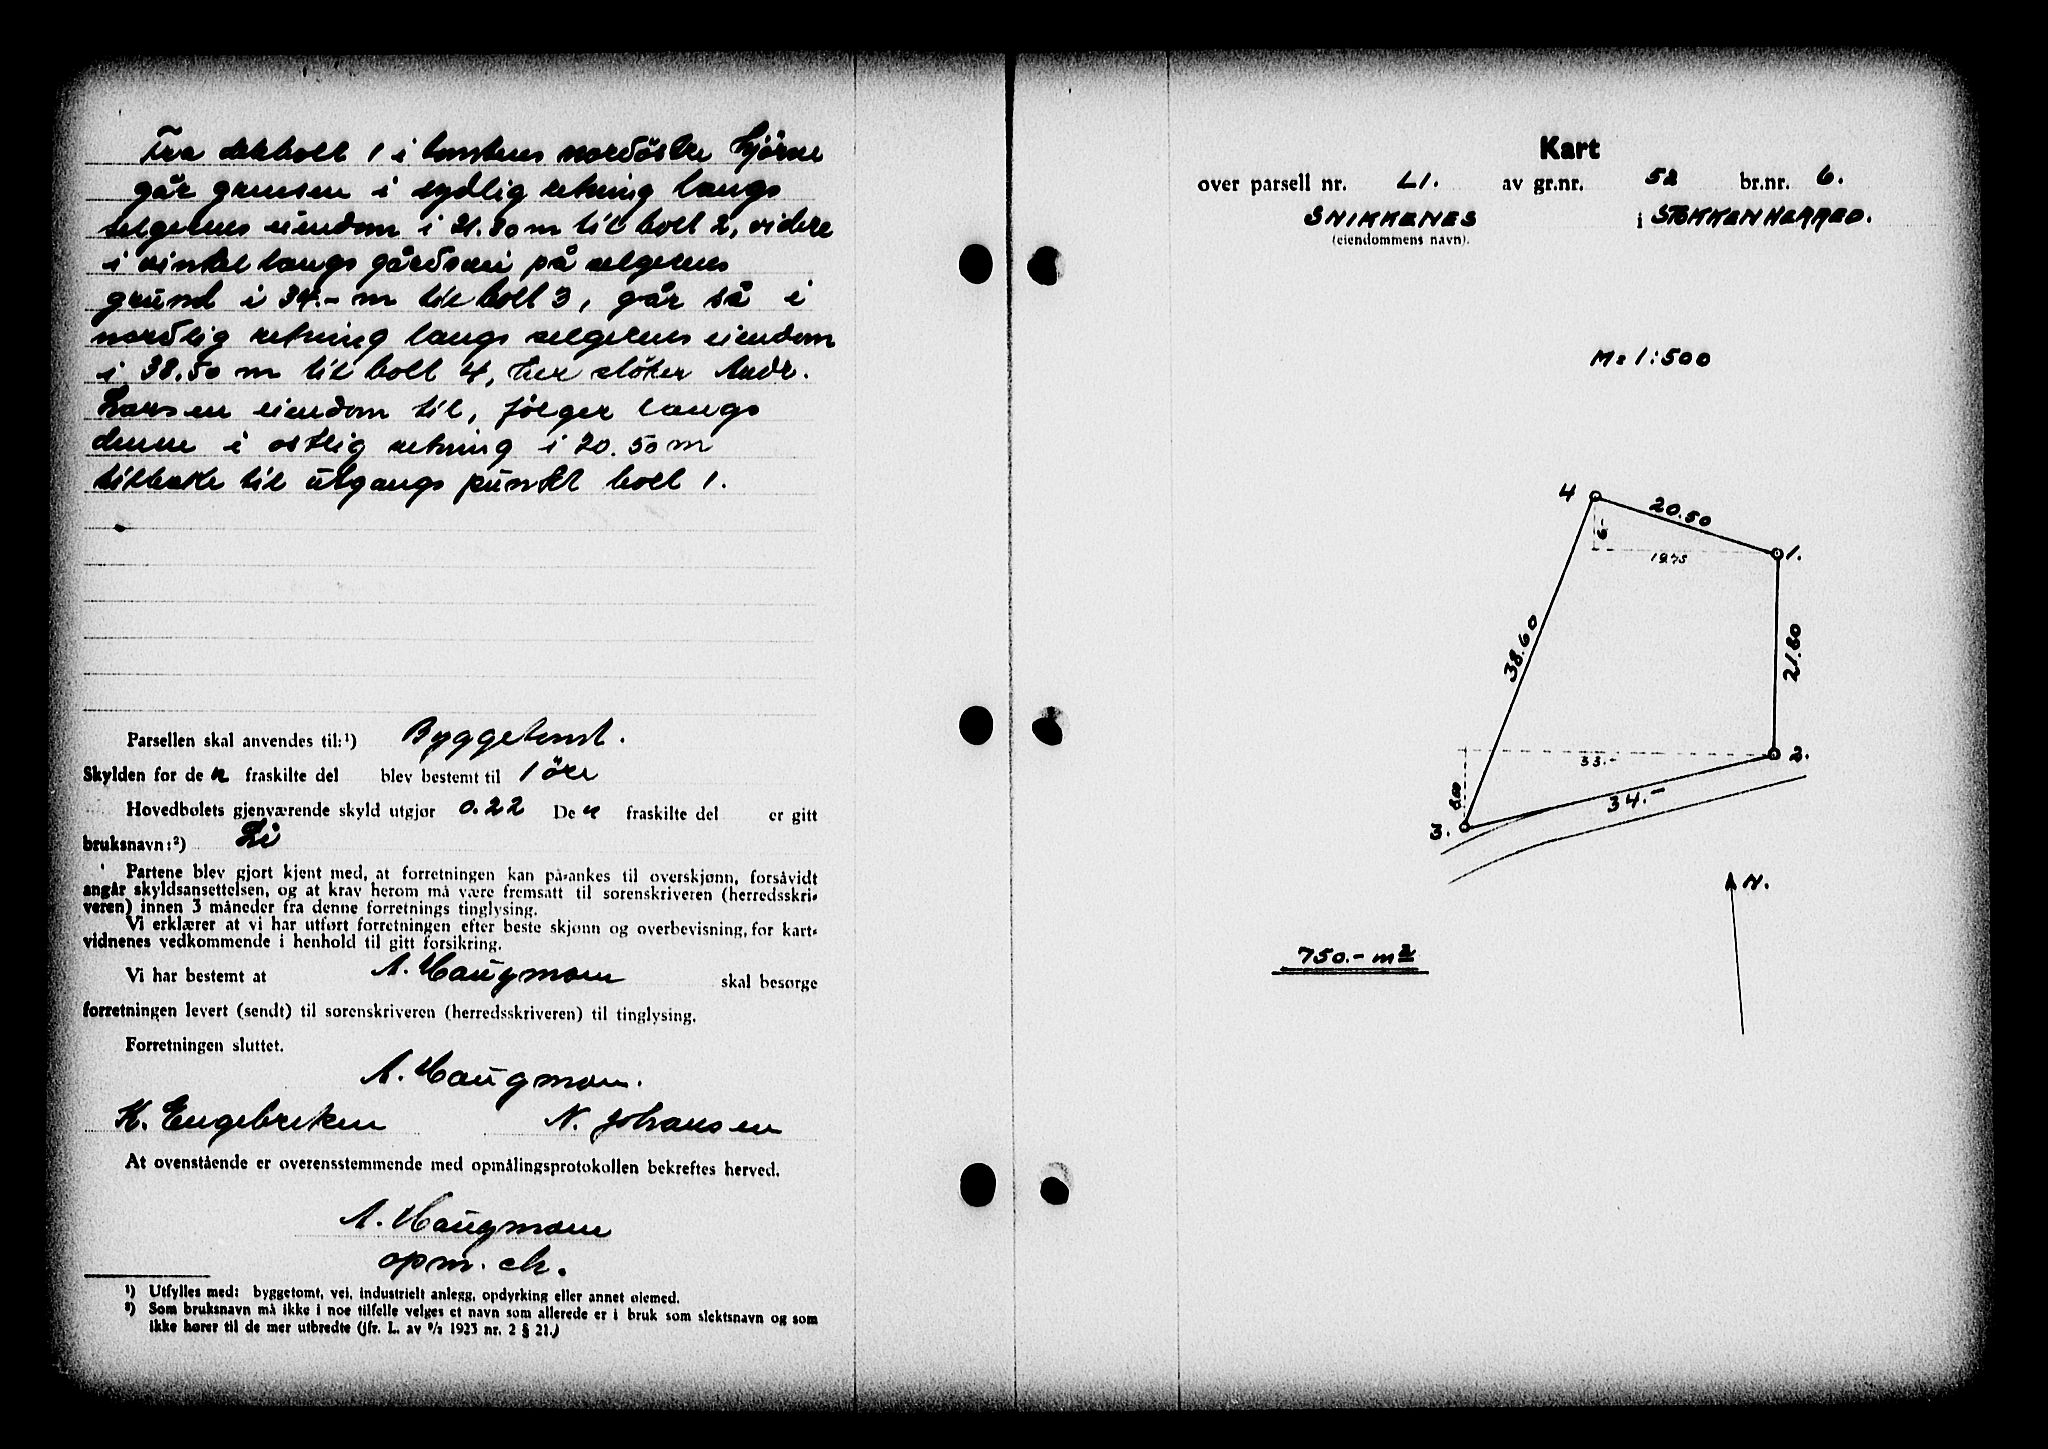 Fra dekbolt 1 i tomtens nordöstre hjörne
går grensen i sydlig retning langs
selgerens eiendom i 21.80 m til bolt 2, videre
i vinkel langs gårdsvei på selgerens
grund i 34.- m til bolt 3, går så i
nordlig retning langs selgerens eiendom
i 38.50 m til bolt 4, her stöter Andr.
Larsen eiendom til, følger langs
denne i ostlig retning i 20.50 m
tilbake til utgangs punkt bolt 1.
Parsellen skal anvendes til:¹) Byggetomt.
Skylden for de n fraskilte del blev bestemt til 1 öre
Hovedbølets gjenværende skyld utgjør 0.22 De n fraskilte del er gitt
bruksnavn:²) Li
Partene blev gjort kjent med, at forretningen kan på-ankes til overskjønn, forsåvidt
angår skyldsansettelsen, og at krav herom må være fremsatt til sorenskriveren (herredsskri-
veren) innen 3 måneder fra denne forretnings tinglysing.
Vi erklærer at vi har utført forretningen efter beste skjønn og overbevisning, for kart-
vidnenes vedkommende i henhold til gitt forsikring.
Vi har bestemt at A. Haugmoen skal besørge
forretningen levert (sendt) til sorenskriveren (herredsskriveren) til tinglysing.
Forretningen sluttet.
A. Haugmoen.
K. Engebretsen N. Johansen
At ovenstående er overensstemmende med opmålingsprotokollen bekreftes herved.
A. Haugmoen
opm. ch.
¹) Utfylles med: byggetomt, vei, industrielt anlegg, opdyrking eller annet øiemed.
²) Som bruksnavn må ikke i noe tilfelle velges et navn som allerede er i bruk som slektsnavn og som
ikke hører til de mer utbredte (jfr. L. av ⁹/₂ 1923 nr. 2 § 21.)
Kart
over parsell nr. LI. av gr.nr. 52 br.nr. 6.
SNIKKENES i STOKKEN HERRED.
(eiendommens navn).
M = 1:500
4 20.50
6.-
19.75 1.
38.60 21.80
33.- 2.
8.00 34.-
3.
N.
750.- m²